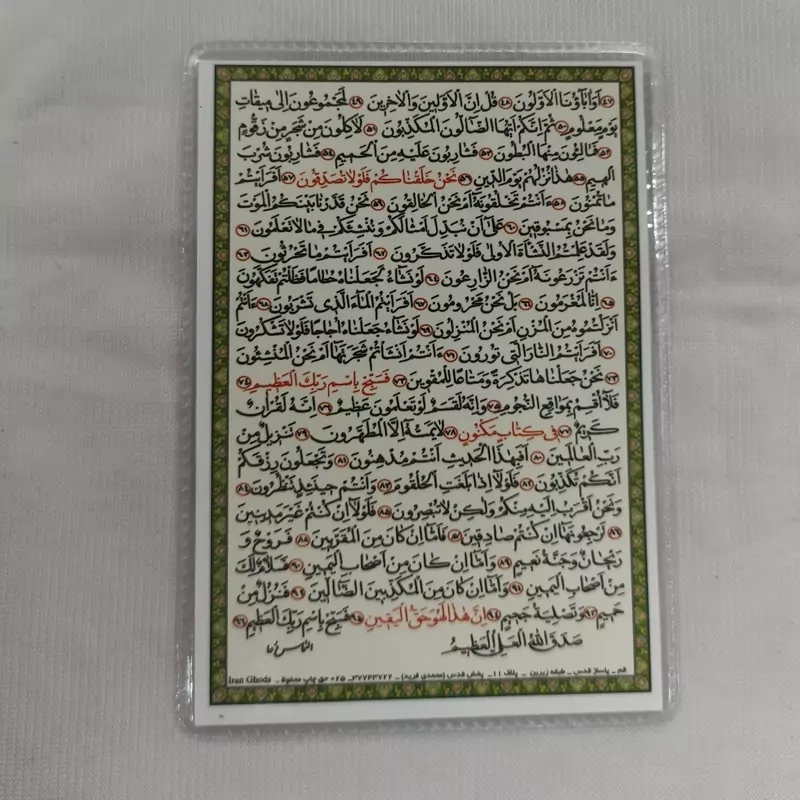 ۴۷ اَوَآبَاؤُنَا الْاَوَّلُونَ ۴۸ قُلْ اِنَّ الْاَوَّلِينَ وَالْاٰخِرِينَ ۴۹ لَمَجْمُوعُونَ اِلٰى مِيقَاتِ
يَوْمٍ مَعْلُومٍ ۵۰ ثُمَّ اِنَّكُمْ اَيُّهَا الضَّالُّونَ الْمُكَذِّبُونَ ۵۱ لَاٰكِلُونَ مِنْ شَجَرٍ مِنْ زَقُّومٍ
۵۲ فَمَالِئُونَ مِنْهَا الْبُطُونَ ۵۳ فَشَارِبُونَ عَلَيْهِ مِنَ الْحَمِيمِ ۵۴ فَشَارِبُونَ شُرْبَ
الْهِيمِ ۵۵ هٰذَا نُزُلُهُمْ يَوْمَ الدِّينِ ۵۶ نَحْنُ خَلَقْنَاكُمْ فَلَوْلَا تُصَدِّقُونَ ۵۷ اَفَرَاَيْتُمْ
مَا تُمْنُونَ ۵۸ ءَاَنْتُمْ تَخْلُقُونَهُ اَمْ نَحْنُ الْخَالِقُونَ ۵۹ نَحْنُ قَدَّرْنَا بَيْنَكُمُ الْمَوْتَ
وَمَا نَحْنُ بِمَسْبُوقِينَ ۶۰ عَلٰى اَنْ نُبَدِّلَ اَمْثَالَكُمْ وَنُنْشِئَكُمْ فِي مَا لَا تَعْلَمُونَ ۶۱
وَلَقَدْ عَلِمْتُمُ النَّشْاَةَ الْاُولٰى فَلَوْلَا تَذَكَّرُونَ ۶۲ اَفَرَاَيْتُمْ مَا تَحْرُثُونَ ۶۳
ءَاَنْتُمْ تَزْرَعُونَهُ اَمْ نَحْنُ الزَّارِعُونَ ۶۴ لَوْ نَشَاءُ لَجَعَلْنَاهُ حُطَامًا فَظَلْتُمْ تَفَكَّهُونَ
۶۵ اِنَّا لَمُغْرَمُونَ ۶۶ بَلْ نَحْنُ مَحْرُومُونَ ۶۷ اَفَرَاَيْتُمُ الْمَاءَ الَّذِي تَشْرَبُونَ ۶۸ ءَاَنْتُمْ
اَنْزَلْتُمُوهُ مِنَ الْمُزْنِ اَمْ نَحْنُ الْمُنْزِلُونَ ۶۹ لَوْ نَشَاءُ جَعَلْنَاهُ اُجَاجًا فَلَوْلَا تَشْكُرُونَ
۷۰ اَفَرَاَيْتُمُ النَّارَ الَّتِي تُورُونَ ۷۱ ءَاَنْتُمْ اَنْشَاْتُمْ شَجَرَتَهَا اَمْ نَحْنُ الْمُنْشِئُونَ
۷۲ نَحْنُ جَعَلْنَاهَا تَذْكِرَةً وَمَتَاعًا لِلْمُقْوِينَ ۷۳ فَسَبِّحْ بِاسْمِ رَبِّكَ الْعَظِيمِ ۷۴
فَلَا اُقْسِمُ بِمَوَاقِعِ النُّجُومِ ۷۵ وَاِنَّهُ لَقَسَمٌ لَوْ تَعْلَمُونَ عَظِيمٌ ۷۶ اِنَّهُ لَقُرْاٰنٌ
كَرِيمٌ ۷۷ فِي كِتَابٍ مَكْنُونٍ ۷۸ لَا يَمَسُّهُ اِلَّا الْمُطَهَّرُونَ ۷۹ تَنْزِيلٌ مِنْ
رَبِّ الْعَالَمِينَ ۸۰ اَفَبِهٰذَا الْحَدِيثِ اَنْتُمْ مُدْهِنُونَ ۸۱ وَتَجْعَلُونَ رِزْقَكُمْ
اَنَّكُمْ تُكَذِّبُونَ ۸۲ فَلَوْلَا اِذَا بَلَغَتِ الْحُلْقُومَ ۸۳ وَاَنْتُمْ حِينَئِذٍ تَنْظُرُونَ ۸۴
وَنَحْنُ اَقْرَبُ اِلَيْهِ مِنْكُمْ وَلٰكِنْ لَا تُبْصِرُونَ ۸۵ فَلَوْلَا اِنْ كُنْتُمْ غَيْرَ مَدِينِينَ
۸۶ تَرْجِعُونَهَا اِنْ كُنْتُمْ صَادِقِينَ ۸۷ فَاَمَّا اِنْ كَانَ مِنَ الْمُقَرَّبِينَ ۸۸ فَرَوْحٌ وَ
رَيْحَانٌ وَجَنَّةُ نَعِيمٍ ۸۹ وَاَمَّا اِنْ كَانَ مِنْ اَصْحَابِ الْيَمِينِ ۹۰ فَسَلَامٌ لَكَ
مِنْ اَصْحَابِ الْيَمِينِ ۹۱ وَاَمَّا اِنْ كَانَ مِنَ الْمُكَذِّبِينَ الضَّالِّينَ ۹۲ فَنُزُلٌ مِنْ
حَمِيمٍ ۹۳ وَتَصْلِيَةُ جَحِيمٍ ۹۴ اِنَّ هٰذَا لَهُوَ حَقُّ الْيَقِينِ ۹۵ فَسَبِّحْ بِاسْمِ رَبِّكَ الْعَظِيمِ ۹۶
صَدَقَ اللّٰهُ الْعَلِيُّ الْعَظِيمُ
التماس دعا
قم ـ پاساژ قدس ـ طبقه زیرین ـ پلاک ۱۱ ـ پخش قدس (محمدی فرید) ـ ۳۷۷۴۳۷۲۲ـ ۰۲۵ حق چاپ محفوظ ـ Iran Ghods